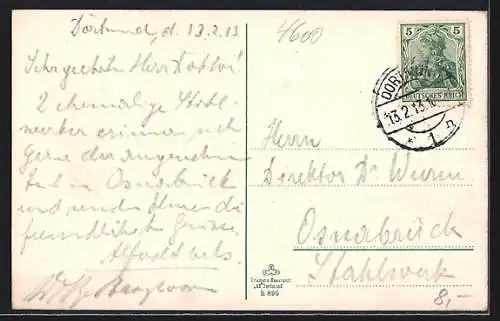 Dortmund, d. 13.2.13
Sehr geehrter Herr Doktor!
2 ehemalige Stahl-
werker erinnern sich
gerne der angenehmen
Zeit in Osnabrück
und senden Ihnen die
freundlichsten Grüsse.
4600
5 5
DEUTSCHES REICH
DORTMUND
13.2.13
* 1 n
Herrn
Direktor Dr Wurm
Osnabrück
Stahlwerk
h 895
8,-